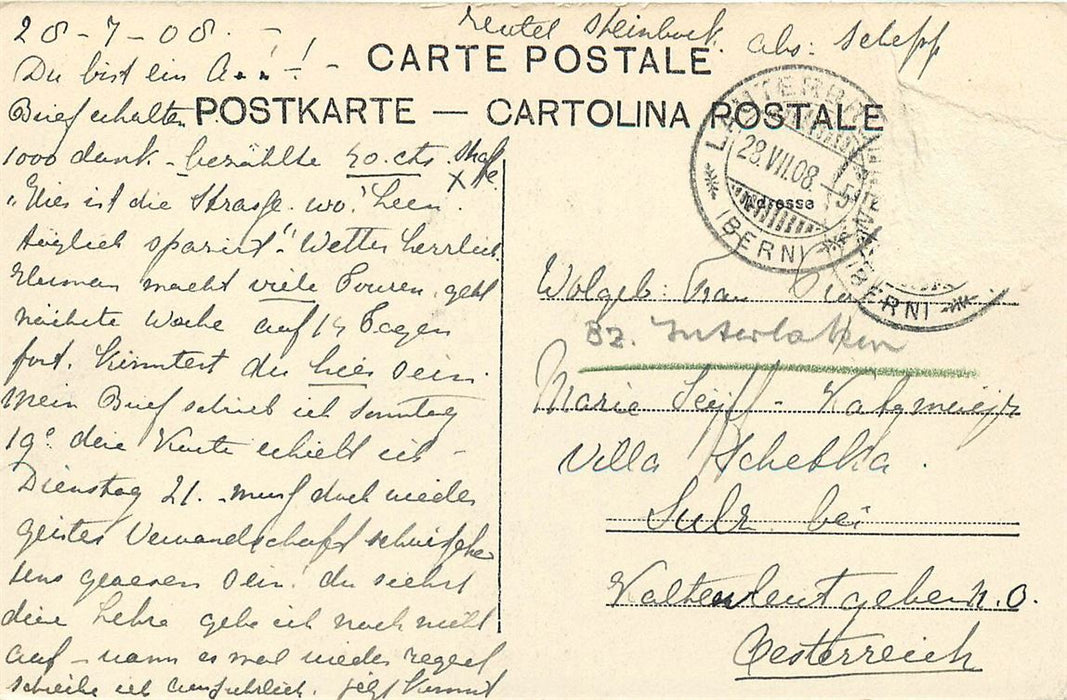 28-7-08.
Hotel Steinbock. Abs: Schepp
Du bist ein A...!-!-
CARTE POSTALE
Brief erhalten
POSTKARTE — CARTOLINA POSTALE
1000 dank - bezahlte 50 cts Strafe
X
"Dies ist die Strasse wo 'Leen'
täglich spaziert". Wetter herrlich
Herman macht viele Touren, geht
nächste Woche auf 14 Tagen
fort. Könntest du hier sein.
Mein Brief schrieb ich Sonntag
19° deine Karte erhielt ich -
Dienstag 21. muss doch wieder
geistes Verwandschaft zwischen
uns gewesen sein. du siehst
deine Lehre gebe ich noch nicht
auf - wann es mal wieder regnet
schreibe ich ausfuhrlich. jetzt kommt
LAUTERBRUNNEN
28.VII.08.-5
(BERN)
Adresse
(BERN)
Wolgeb: Frau
Bz. Interlaken
Marie
Villa Schebka.
Sulz bei
Kaltenleutgeben N.O.
Oesterreich